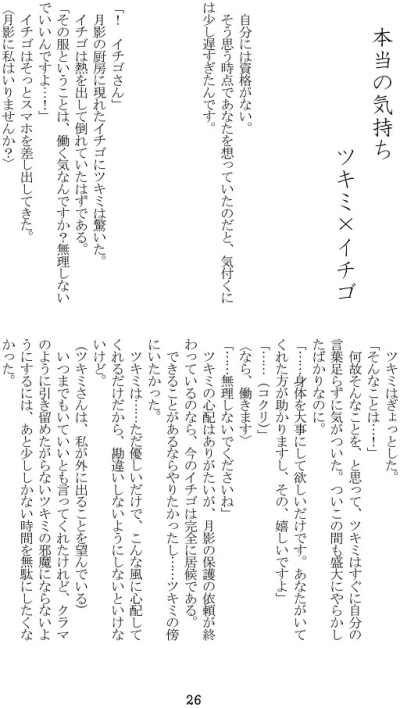 本当の気持ち
ツキミ×イチゴ
自分には資格がない。
そう思う時点であなたを想っていたのだと、気付くに
は少し遅すぎたんです。
「！　イチゴさん」
月影の厨房に現れたイチゴにツキミは驚いた。
イチゴは熱を出して倒れていたはずである。
「その服ということは、働く気なんですか？無理しない
でいいんですよ…！」
イチゴはそっとスマホを差し出してきた。
〈月影に私はいりませんか？〉
ツキミはぎょっとした。
「そんなことは…！」
何故そんなことを、と思って、ツキミはすぐに自分の
言葉足らずに気がついた。ついこの間も盛大にやらかし
たばかりなのに。
「……身体を大事にして欲しいだけです。あなたがいて
くれた方が助かりますし、その、嬉しいですよ」
「……（コクリ）」
〈なら、働きます〉
「……無理しないでくださいね」
ツキミの心配はありがたいが、月影の保護の依頼が終
わっているのなら、今のイチゴは完全に居候である。
できることがあるならやりたかったし……ツキミの傍
にいたかった。
ツキミは……ただ優しいだけで、こんな風に心配して
くれるだけだから、勘違いしないようにしないといけな
いけど。
（ツキミさんは、私が外に出ることを望んでいる）
いつまでもいていいとも言ってくれたけれど、クラマ
のように引き留めたがらないツキミの邪魔にならないよ
うにするには、あと少ししかない時間を無駄にしたくな
かった。
26